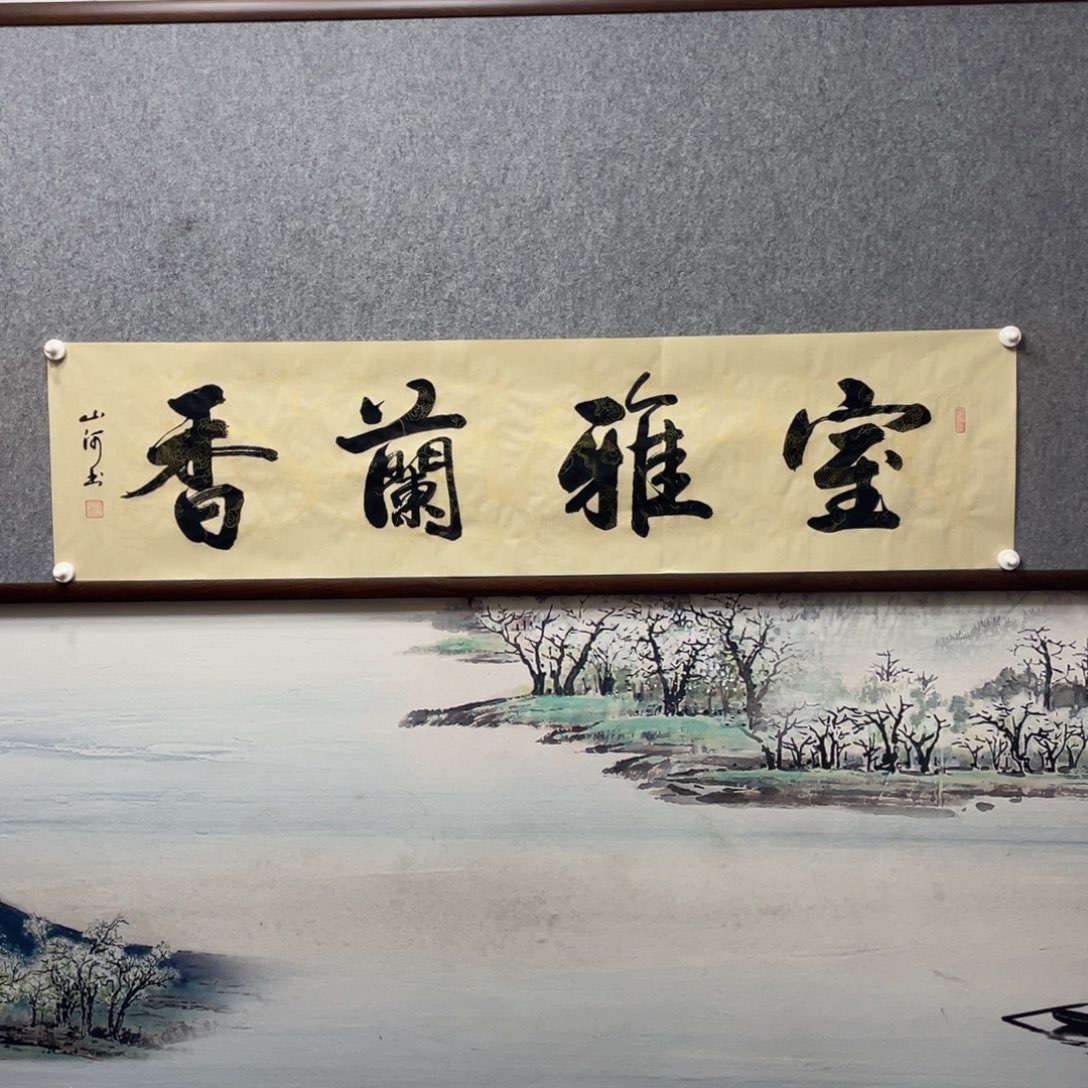 室雅蘭香
山河书